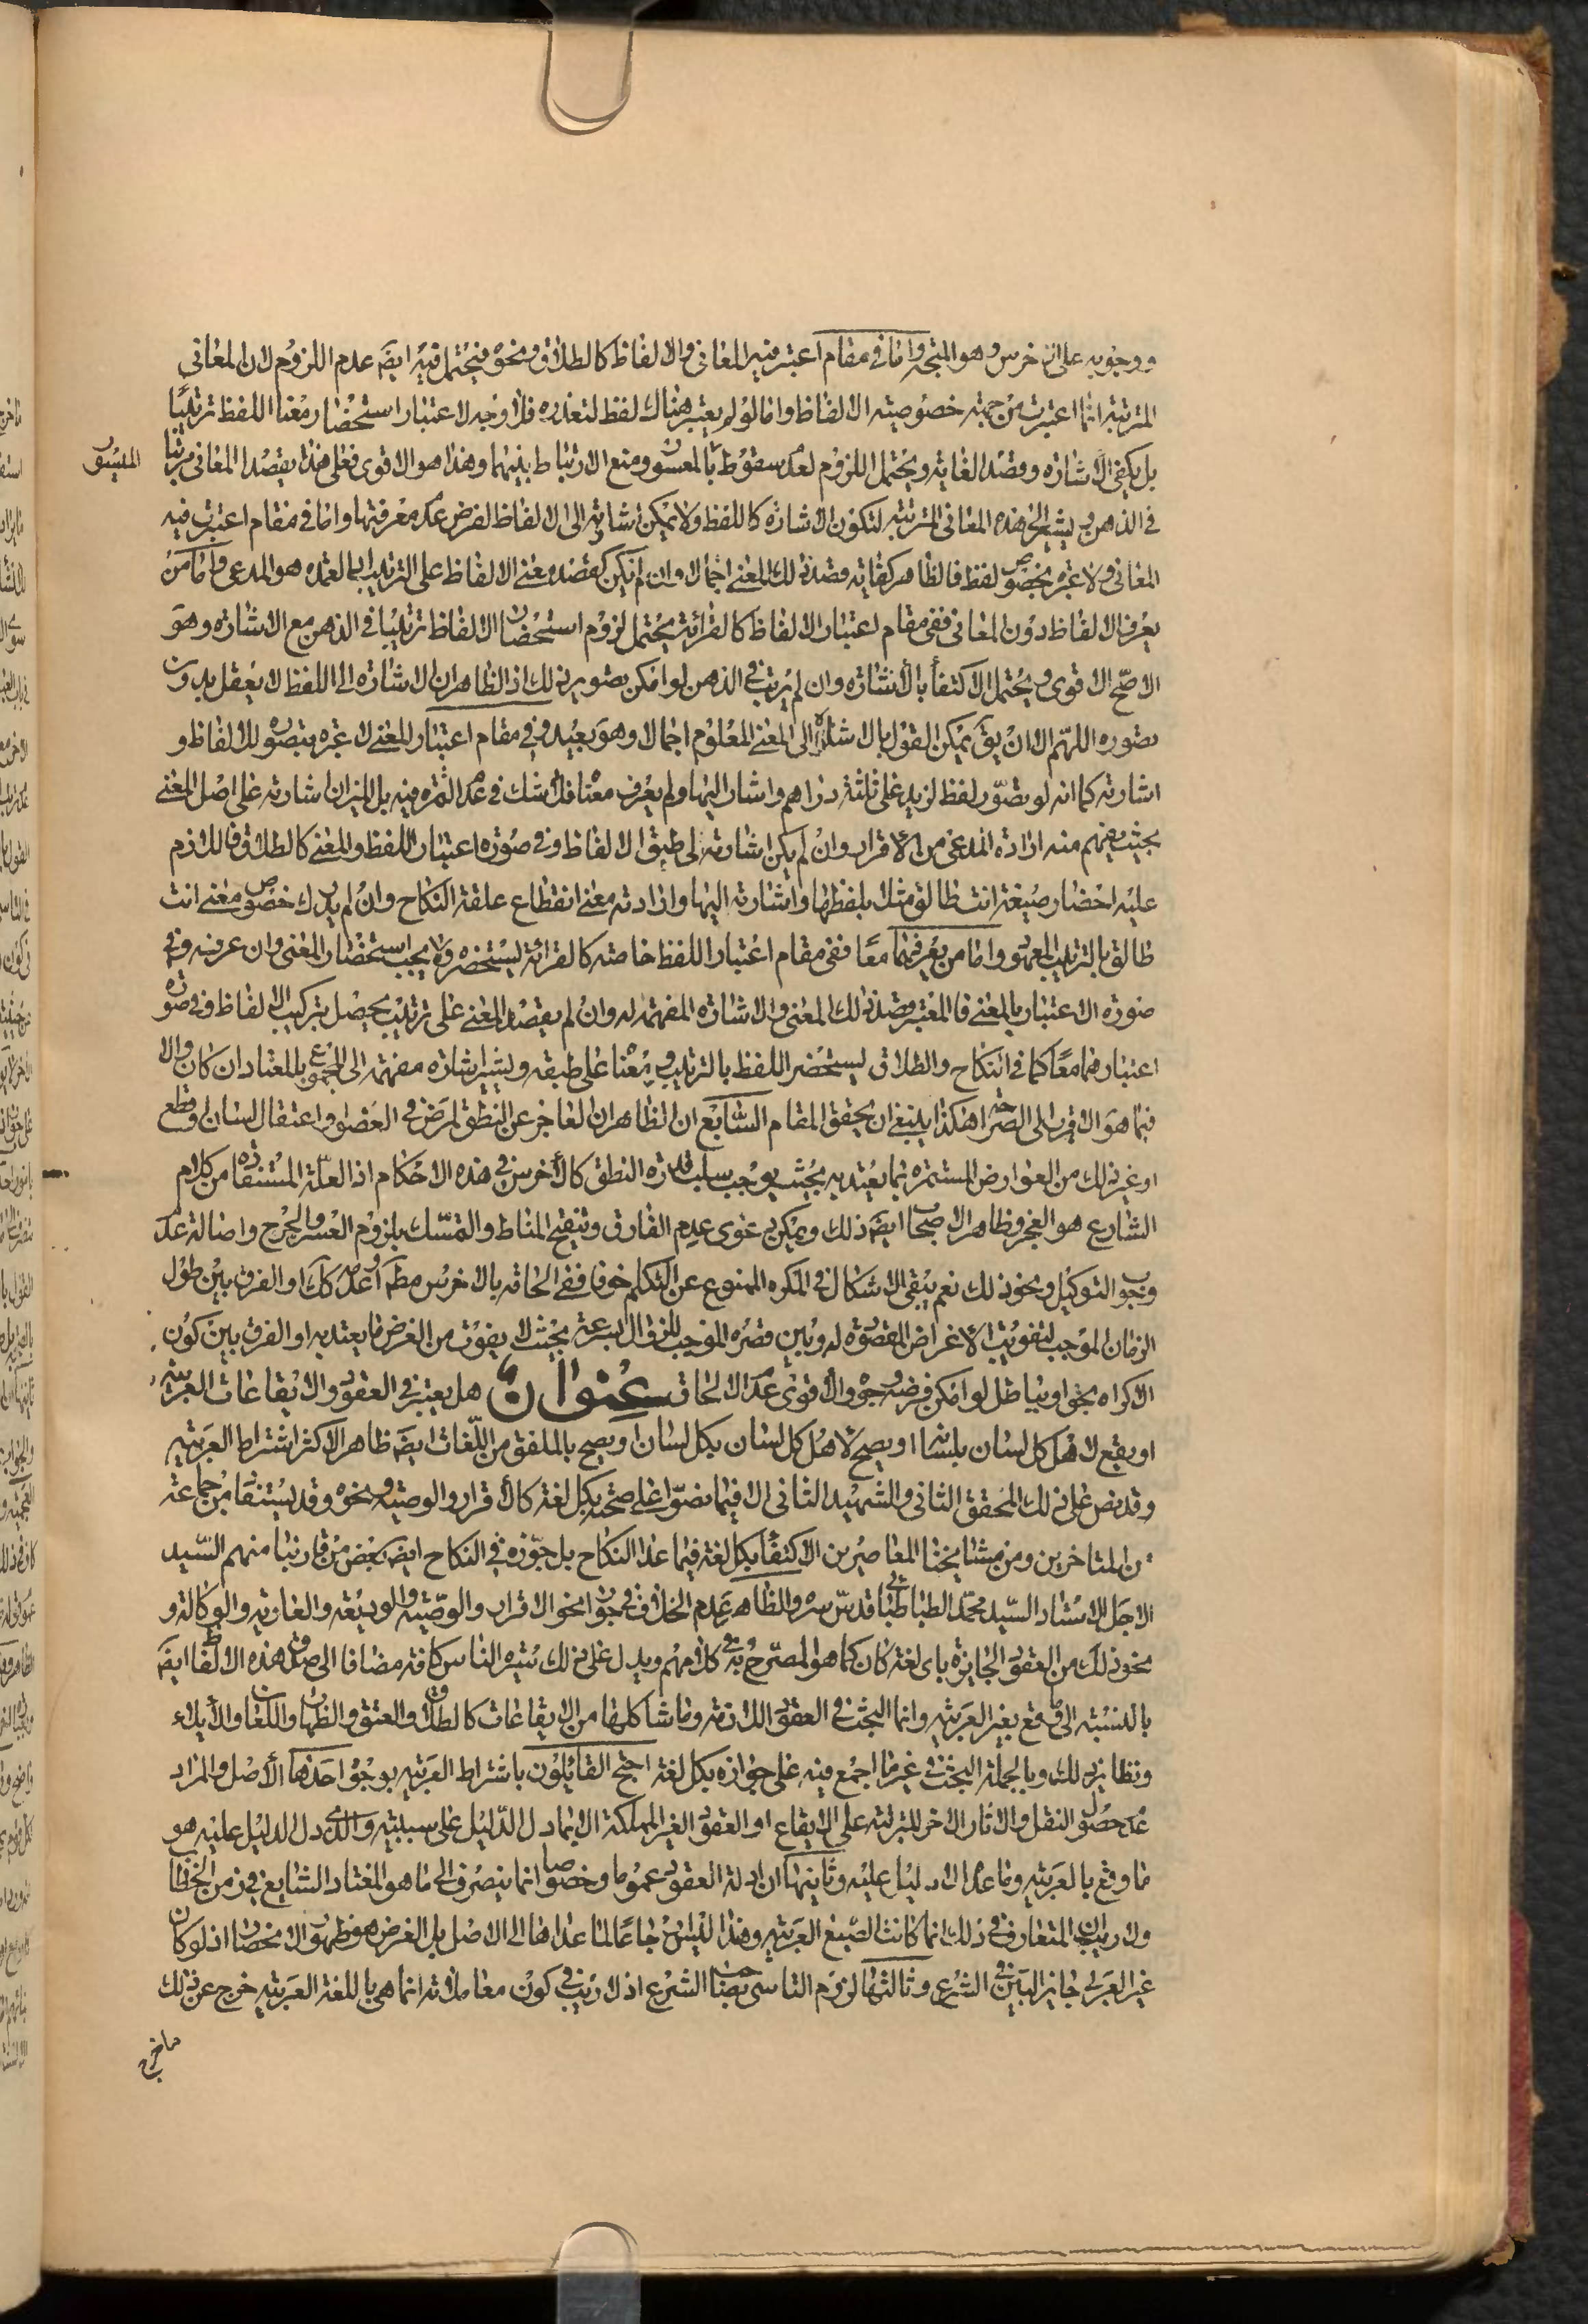 ووجوبه على الاخرس وهو المتجه واما في مقام اعتبر فيه المعاني والالفاظ كالطلاق ونحوه فيحتمل فيه ايضَ عدم اللزوم لان المعاني
المترتبة انما اعتبرت من جهة خصوصية الالفاظ واما لو لم يعتبر هناك لفظ لتعذره فلا وجه لاعتبار استحضار معنا اللفظ ترتيبًا
بل يكفي الاشارة وقصد الغاية ويحتمل اللزوم لعدم سقوط بالمعسور ومنع الارتباط بينهما وهذا هو الاقوى فعلى هذا يقصد المعاني مرتبا
الميسور
في الذهن ويشير الى هذه المعاني المترتبة لتكون الاشارة كاللفظ ولا يمكن اشارته الى الالفاظ لفرض عدم معرفتها واما في مقام اعتبرت فيه
المعاني ولا عبرة بخصوص لفظ فالظاهر كفاية قصد ذلك المعنى اجمالا وان لم يكن كقصد معنى الالفاظ على الترتيب اذ العمدة هو المدعى واما من
يعرف الالفاظ دون المعاني ففي مقام اعتبار الالفاظ كالقرائة يحتمل لزوم استحضار الالفاظ ترتيبا في الذهن مع الاشارة وهو
الاصح الاقوى ويحتمل الاكتفأ بالاشارة وان لم يرتب في الذهن لو امكن تصوير ذلك اذ الظاهر ان الاشارة الى اللفظ لا يعقل بدون
تصوره اللهم الا ان يقَ يمكن القول بالاشارة الى المعنى المعلوم اجمالا وهو بعيد وفي مقام اعتبار المعنى لا عبرة بتصور الالفاظ و
اشارته كما انه لو تصور لفظ لزيد على ثلثة دراهم واشار اليها ولم يعرف معنا فلا شك في عدم الثمرة فيه بل الميزان اشارته على اصل المعنى
بحيث يفهم منه ارادة المدعى من الاقرار وان لم يكن اشارته الى طبق الالفاظ وفي صورة اعتبار اللفظ والمعنى كالطلاق فاللازم
عليه احضار صيغة انت طالق مثلا بلفظها واشارته اليها وارادته معنى انقطاع علقة النكاح وان لم يدرك خصوص معنى انت
طالق بالترتيب المعهود واما من يعرفهما معًا ففي مقام اعتبار اللفظ خاصة كالقرائة يستحضره ولا يجب استحضار المعنى وان عرفه وفي
صورة الاعتبار بالمعنى فالمعتبر قصد ذلك المعنى والاشارة المفهمة له وان لم يقصد المعنى على ترتيب يحصل بتركيب الالفاظ وفي صورة
اعتبارهما معًا كما في النكاح والطلاق يستحضر اللفظ بالترتيب ومعنا على طبقه ويشير اشارة مفهمة الى المجموع بالمعتاد ان كان والا
فبما هو الاقرب الى الصراحة هكذا ينبغي ان يحقق المقام السابع ان الظاهر ان العاجز عن النطق لمرض في العضو او اعتقال لسان او قطع
او غير ذلك من العوارض المستمرة بما يعتد به بحيث يوجب سلب قدرة النطق كالأخرس في هذه الاحكام اذ العلة المستفادة من كلام
الشارع هو العجز وظاهر الاصحاب ايضَ ذلك ويمكن دعوى عدم الفارق وتنقيح المناط والتمسك بلزوم العسر والحرج واصالة عدم
وجوب التوكيل ونحو ذلك نعم يبقى الاشكال في المكره الممنوع عن التكلم خوفا ففي الحاقه بالاخرس مطَ او عدمه كك او الفرق بين طول
الزمان الموجب لتفويت الأغراض المقصودة له وبين قصره الموجب للزوال بسرعة بحيث لا يفوت من الغرض ما يعتد به او الفرق بين كون
الاكراه بحق او بباطل لو امكن فرضه وجوه والأقوى عدم الالحاق عنوان هل يعتبر في العقود والايقاعات العربية
او يقع لاهل كل لسان بلسانه او يصح لاهل كل لسان بكل لسان او يصح بالملفق من اللغات ايضَ ظاهر الاكثر اشتراط العربية
وقد نص على ذلك المحقق الثاني والشهيد الثاني الا فيما نصوا على صحته بكل لغة كالأقرار والوصية ونحوه وقد يستفاد من جماعة
من المتاخرين ومن مشايخنا المعاصرين الاكتفا بكل لغة فيما عدا النكاح بل جوزه في النكاح ايضَ بعض من قاربنا منهم السيد
الاجل الاستاد السيد محمد الطباطبائي قدس سره والظاهر عدم الخلاف في جواز نحو الاقرار والوصية والوديعة والعارية والوكالة و
نحو ذلك من العقود الجايزة باى لغة كان كما هو المصرح به في كلامهم ويدل على ذلك سيرة الناس كافة مضافا الى صدق هذه الالفاظ ايضَ
بالنسبة الى ما وقع بغير العربية وانما البحث في العقود اللازمة وما شاكلها من الايقاعات كالطلاق والعتق والظهار واللعان والأيلاء
ونظاير ذلك وبالجملة البحث في غير ما اجمع فيه على جوازه بكل لغة احتج القائلون باشتراط العربية بوجوه احدها الأصل والمراد
عدم حصول النقل والاثار الاخر المترتبة على الايقاع او العقود الغير المملكة الا بما دل الدليل على سببيته والذى دل الدليل عليه هو
ما وقع بالعربية وما عداه لا دليل عليه وثانيها ان ادلة العقود عموما وخصوصا انما ينصرف الى ما هو المعتاد الشايع في زمن الخطاب
ولا ريب ان المتعارف في ذلك انما كانت الصيغ العربية وهذا ليس ارجاعًا لما عداها الى الاصل بل الغرض هو ظهور الانحصار اذ لو كان
غير العربى جايزا لبين في الشرع وثالثها لزوم التاسى بصاحب الشرع اذ لا ريب في كون معاملاته انما هى باللغة العربية خرج عن ذلك
ما خرج